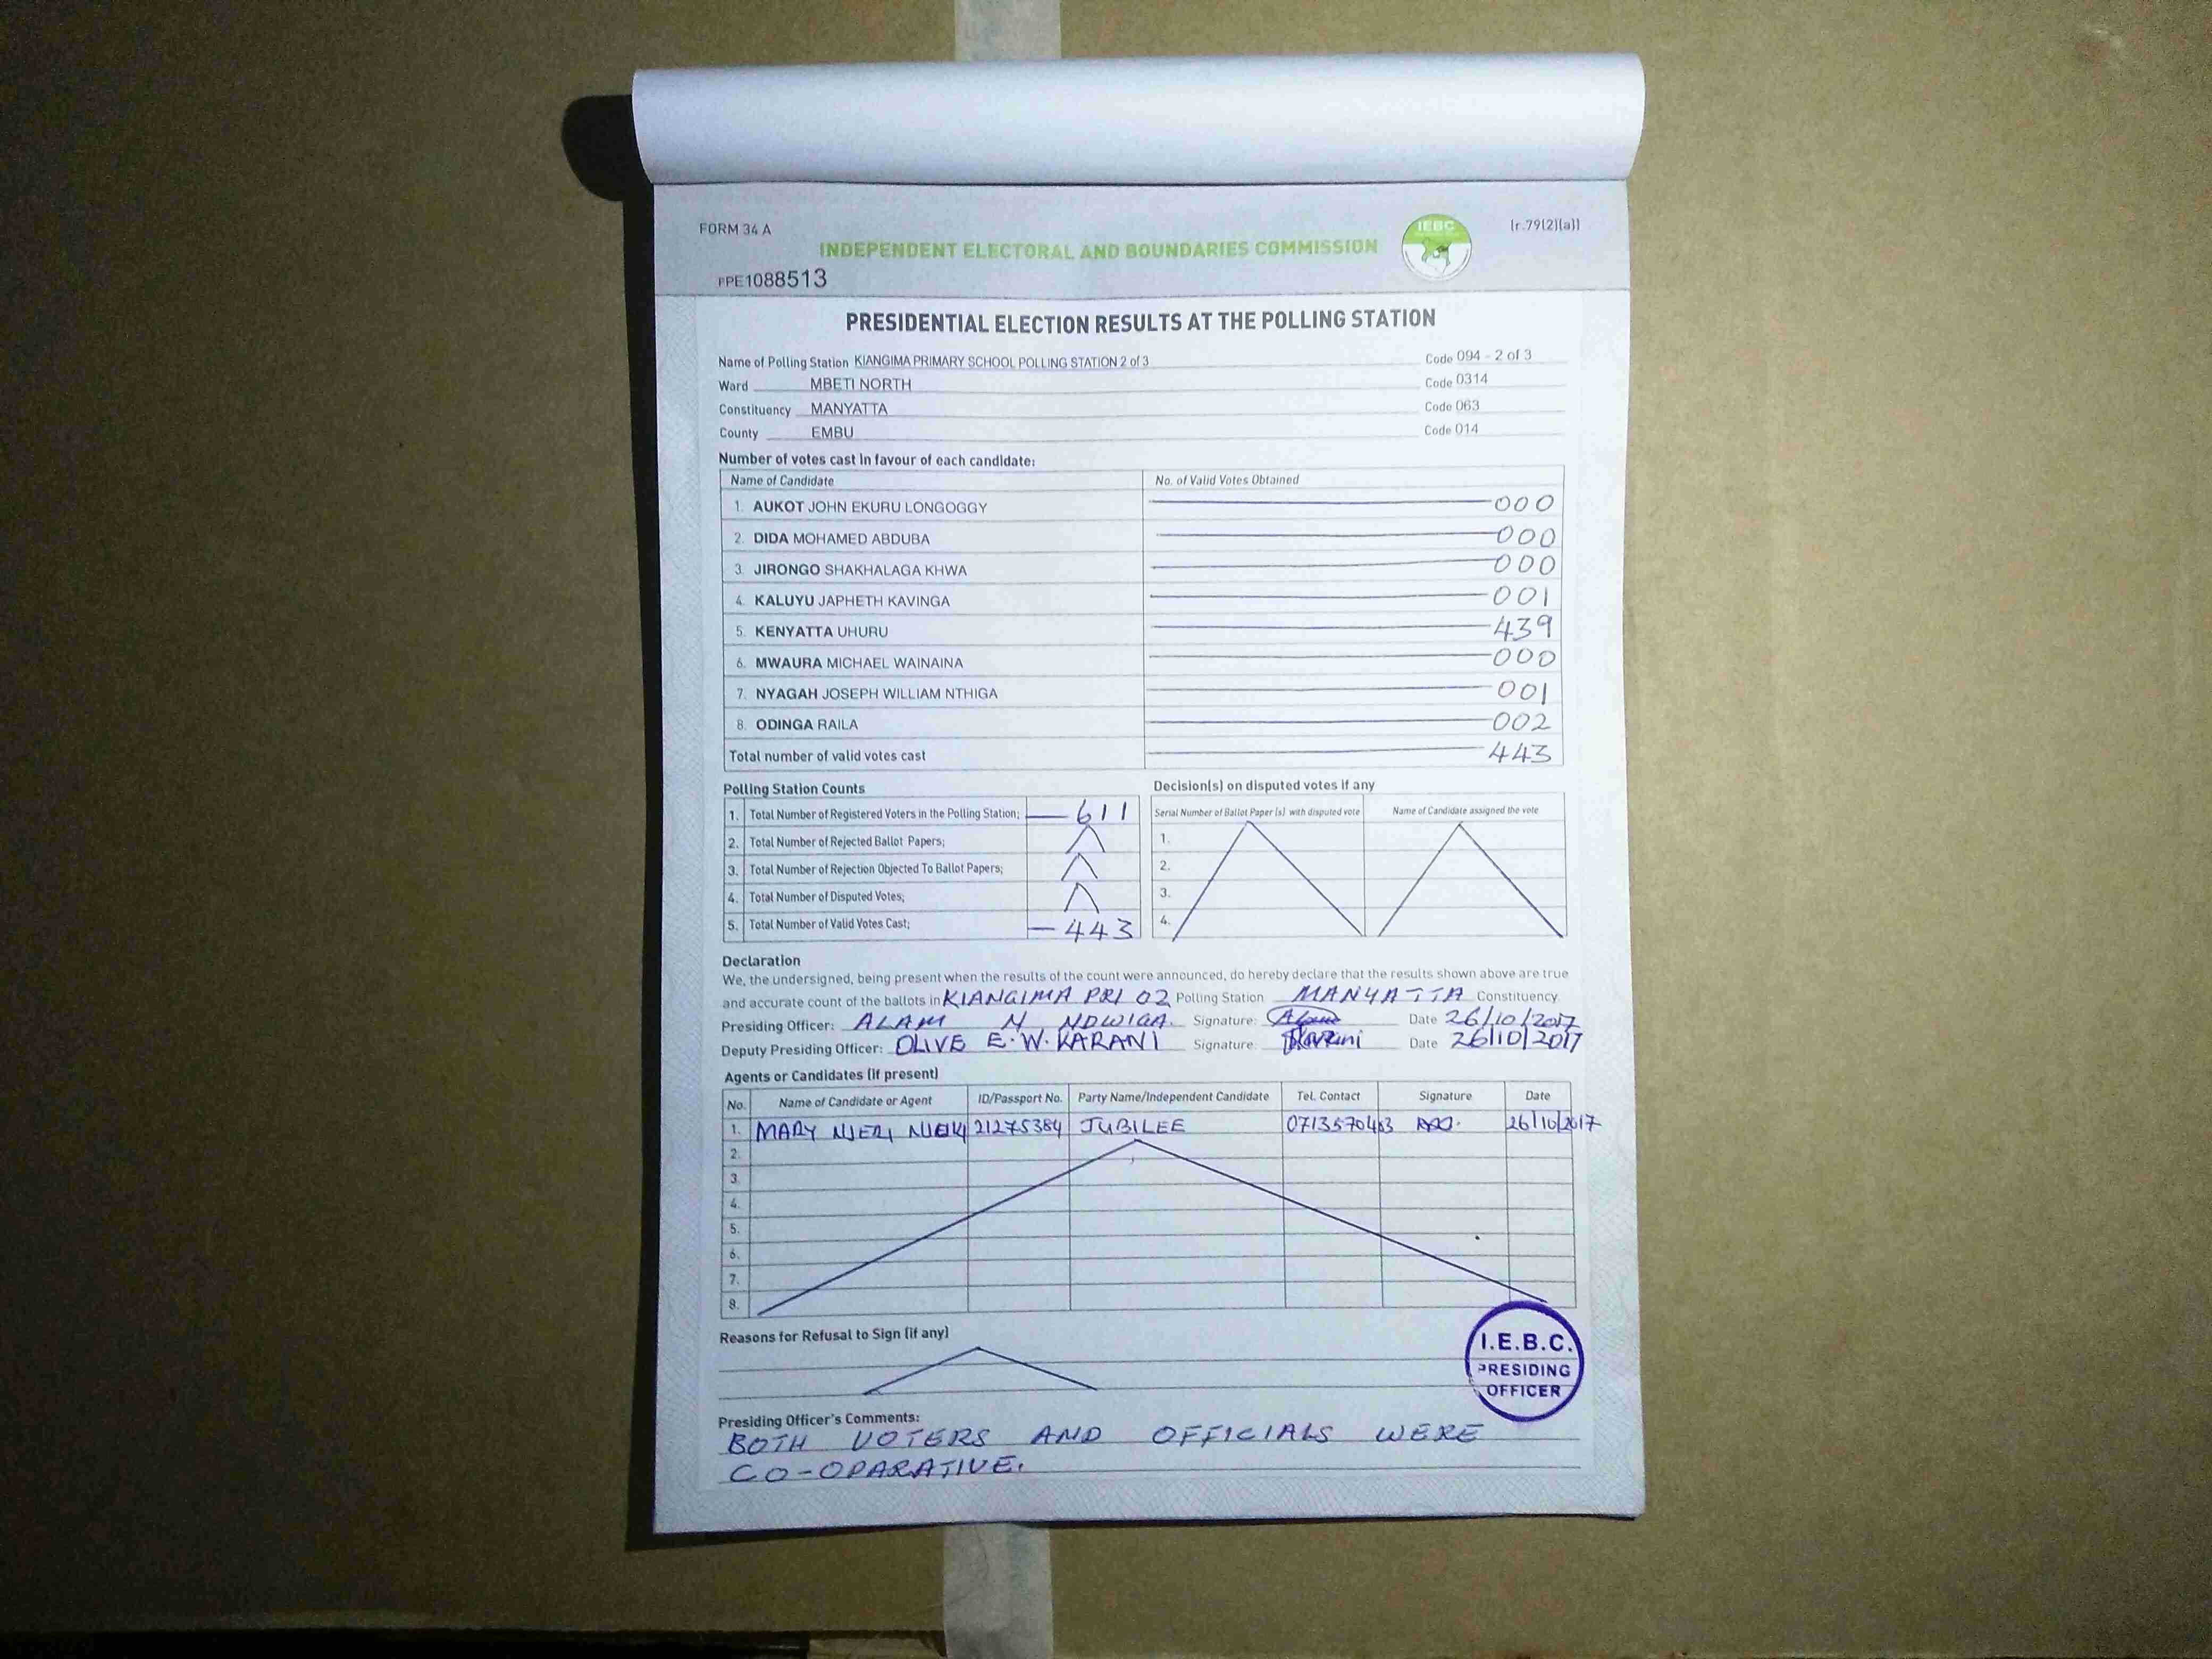 FORM 34 A
IEBC
[r.79(2)(a)]
INDEPENDENT ELECTORAL AND BOUNDARIES COMMISSION
PPE1088513
PRESIDENTIAL ELECTION RESULTS AT THE POLLING STATION
Name of Polling Station KIANGIMA PRIMARY SCHOOL POLLING STATION 2 of 3 Code 094 - 2 of 3
Ward MBETI NORTH Code 0314
Constituency MANYATTA Code 063
County EMBU Code 014
Number of votes cast in favour of each candidate:
Name of Candidate No. of Valid Votes Obtained
1. AUKOT JOHN EKURU LONGOGGY 000
2. DIDA MOHAMED ABDUBA 000
3. JIRONGO SHAKHALAGA KHWA 000
4. KALUYU JAPHETH KAVINGA 001
5. KENYATTA UHURU 439
6. MWAURA MICHAEL WAINAINA 000
7. NYAGAH JOSEPH WILLIAM NTHIGA 001
8. ODINGA RAILA 002
Total number of valid votes cast 443
Polling Station Counts
1. Total Number of Registered Voters in the Polling Station; 611
2. Total Number of Rejected Ballot Papers;
3. Total Number of Rejection Objected To Ballot Papers;
4. Total Number of Disputed Votes;
5. Total Number of Valid Votes Cast; 443
Decision(s) on disputed votes if any
Serial Number of Ballot Paper (s) with disputed vote Name of Candidate assigned the vote
1.
2.
3.
4.
Declaration
We, the undersigned, being present when the results of the count were announced, do hereby declare that the results shown above are true
and accurate count of the ballots in KIANGIMA PRI 02 Polling Station MANYATTA Constituency
Presiding Officer: ALAM N NDWIGA. Signature: Date 26/10/2017
Deputy Presiding Officer: OLIVE E.W. KARANI Signature: Karani Date 26/10/2017
Agents or Candidates (if present)
No. Name of Candidate or Agent ID/Passport No. Party Name/Independent Candidate Tel. Contact Signature Date
1. MARY NJERI 21275384 JUBILEE 0713570463 26/10/2017
2.
3.
4.
5.
6.
7.
8.
Reasons for Refusal to Sign (if any)
I.E.B.C.
PRESIDING
OFFICER
Presiding Officer's Comments:
BOTH VOTERS AND OFFICIALS WERE
CO-OPARATIVE.